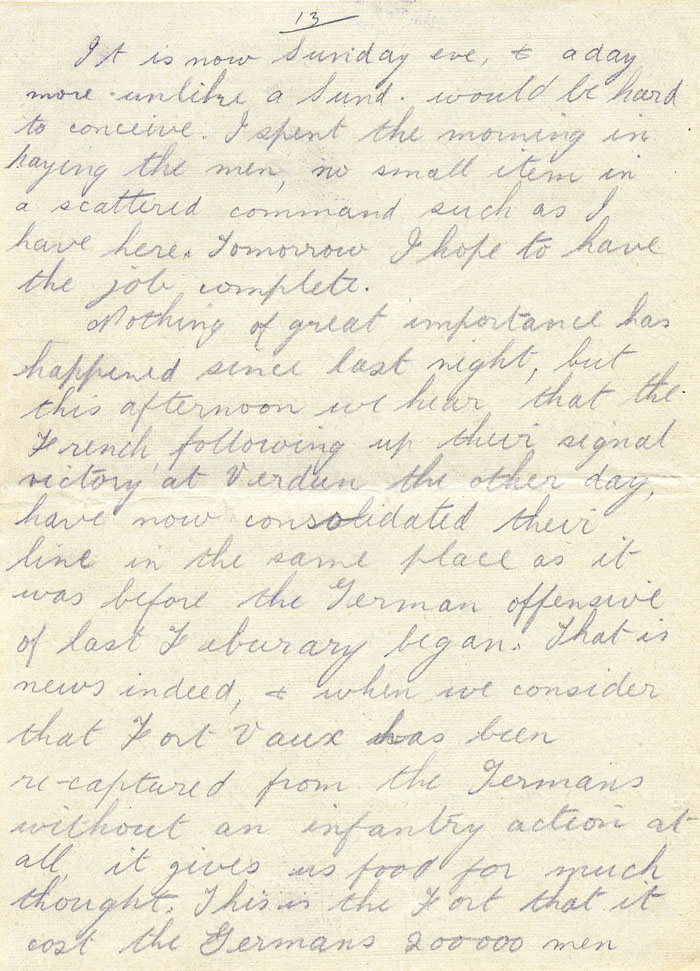 13
It is now Sunday eve, & a day
more unlike a Sund. would be hard
to conceive. I spent the morning in
paying the men, no small item in
a scattered command such as I
have here. Tomorrow I hope to have
the job complete.
Nothing of great importance has
happened since last night, but
this afternoon we hear that the
French, following up their signal
victory at Verdun the other day,
have now consolidated their
line in the same place as it
was before the German offensive
of last Feburary began. That is
news indeed, & when we consider
that Fort Vaux has been
re-captured from the Germans
without an infantry action at
all, it gives us food for much
thought. This is the Fort that it
cost the Germans 200000 men